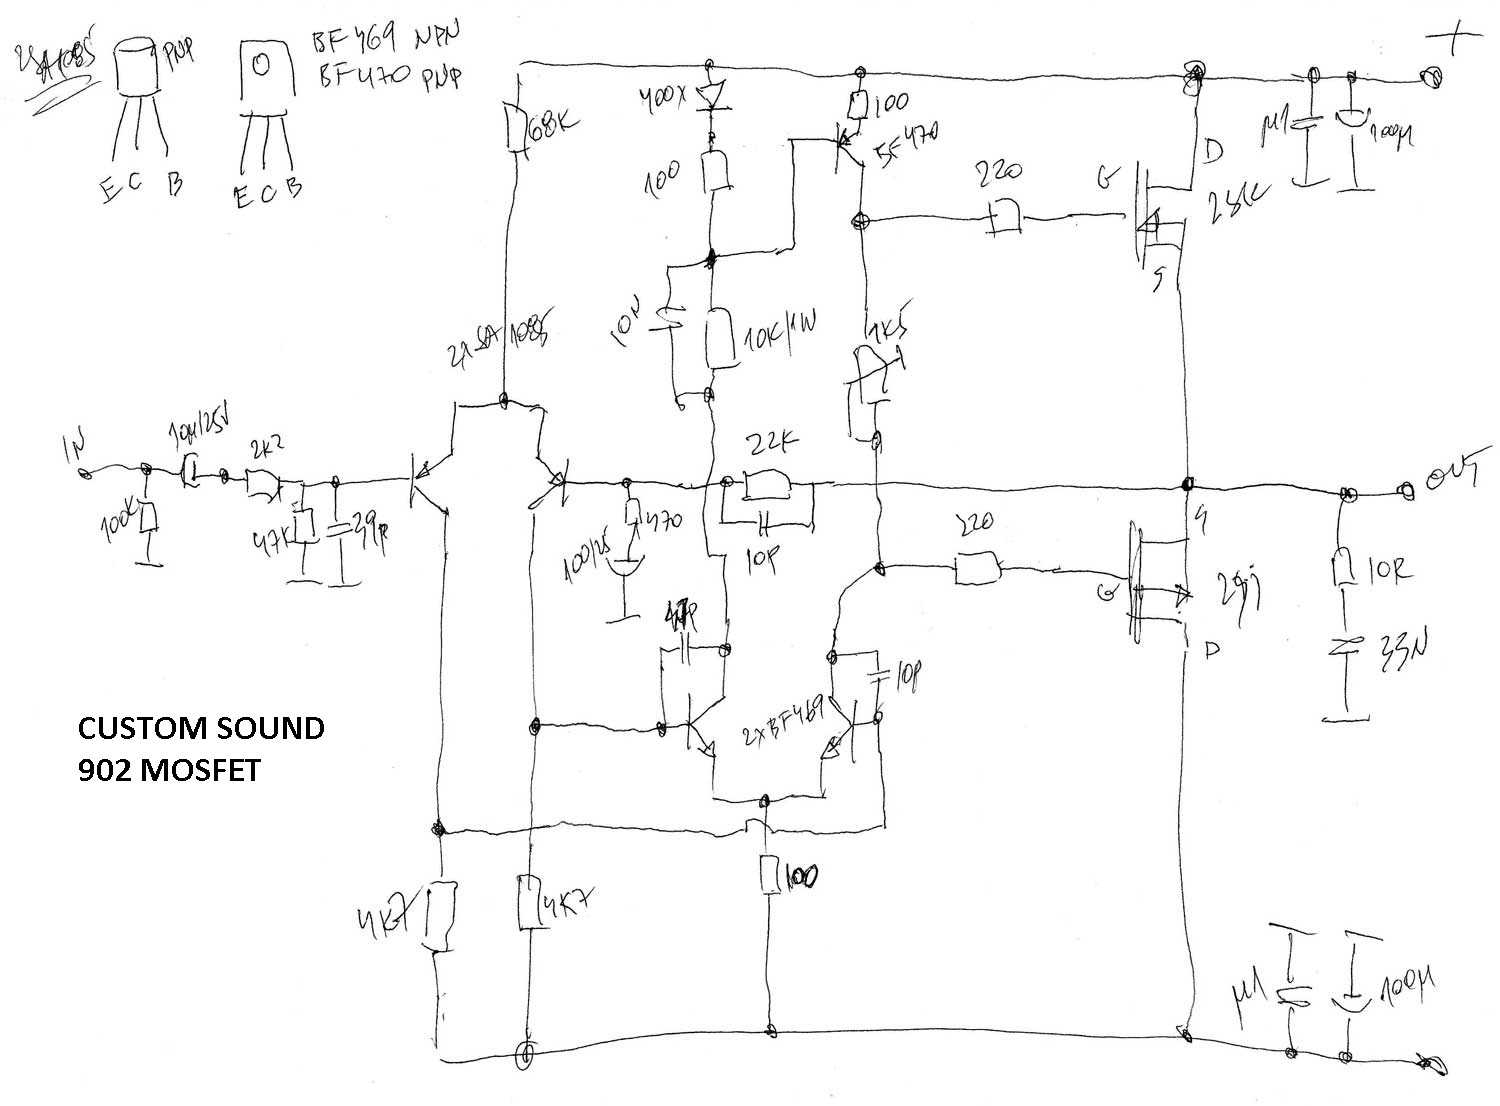 2SA1085
PNP
BF469 NPN
BF470 PNP
E C B
E C B
+
68K
400X
100
100
BF470
220
G
D
µ1
100µ
S
2x SA 1085
10N
10K/1W
1K5
IN
10µ/25V
2K2
100K
47K
39p
22K
10P
470
100/25
OUT
220
S
G
D
10R
33N
10p
2xBF469
CUSTOM SOUND
902 MOSFET
4K7
4K7
100
µ1
100µ